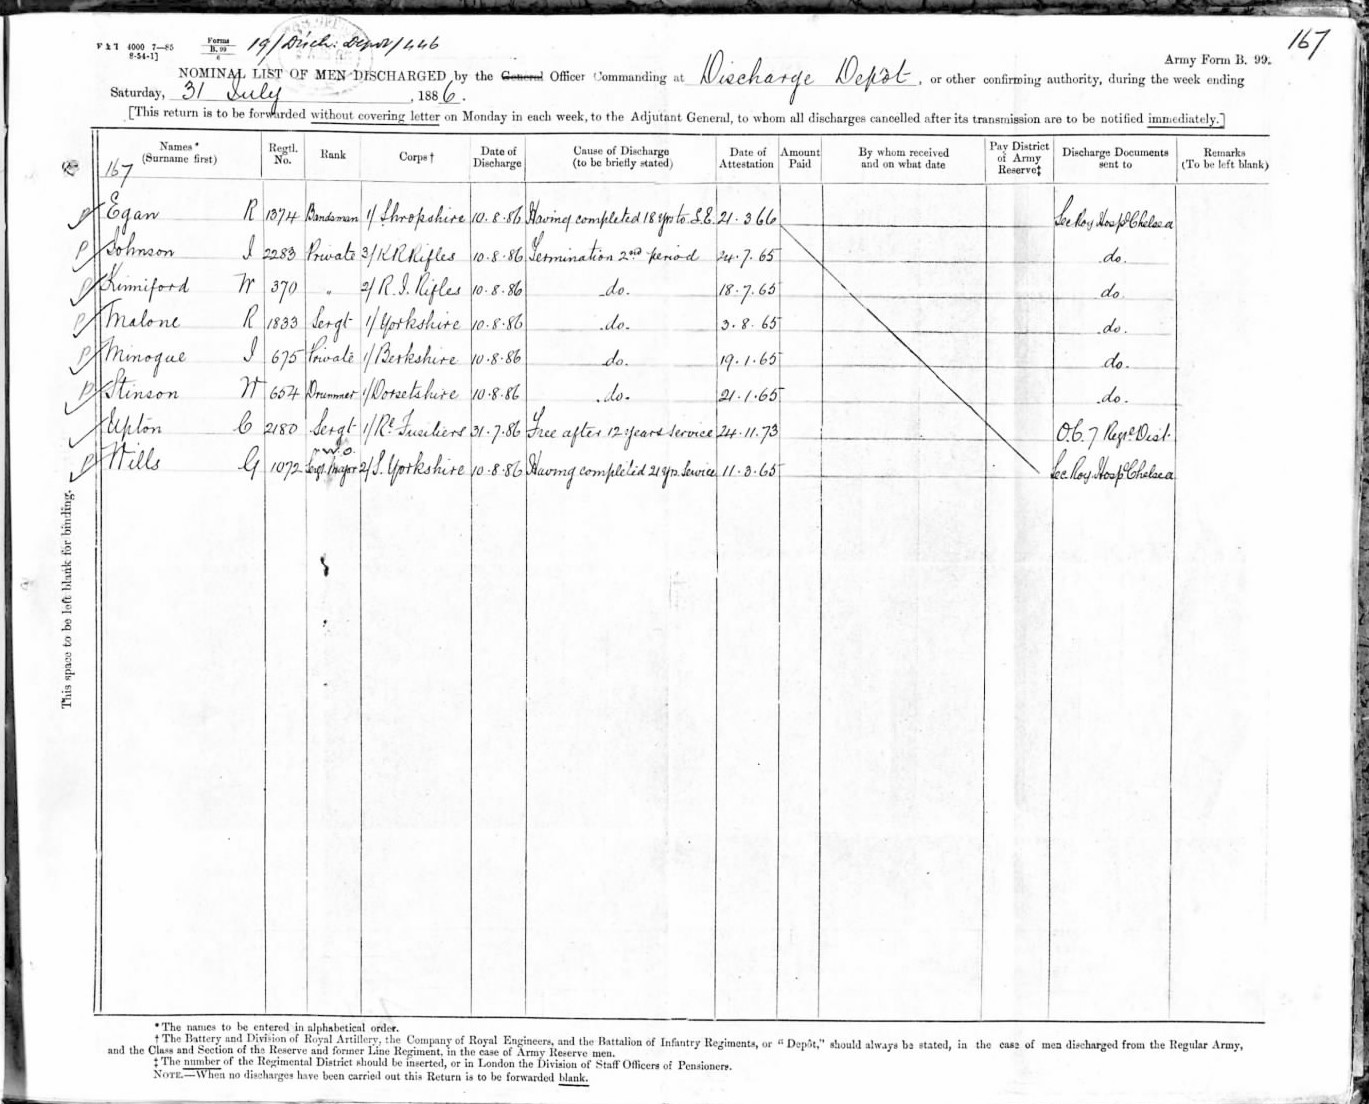 167
F & T 4000 7—85 Forms B. 99 19/Disch: Depot/446
8-54-1] 6
Army Form B. 99.
NOMINAL LIST OF MEN DISCHARGED by the General Officer Commanding at Discharge Depôt, or other confirming authority, during the week ending
Saturday, 31 July, 1886.
[This return is to be forwarded without covering letter on Monday in each week, to the Adjutant General, to whom all discharges cancelled after its transmission are to be notified immediately.]
Names* (Surname first) Regtl. No. Rank Corps† Date of Discharge Cause of Discharge (to be briefly stated) Date of Attestation Amount Paid By whom received and on what date Pay District of Army Reserve‡ Discharge Documents sent to Remarks (To be left blank)
167
P Egan R 1374 Bandsman 1/ Shropshire 10.8.86 Having completed 18 yrs to S.E. 21.3.66 Sec Roy Hospl Chelsea
P Johnson J 2283 Private 3/ K R Rifles 10.8.86 Termination 2nd period 24.7.65 do.
P Kinniford W 370 " 2/ R. I. Rifles 10.8.86 do. 18.7.65 do
P Malone R 1833 Sergt 1/ Yorkshire 10.8.86 do. 3.8.65 do.
P Minogue J 675 Private 1/ Berkshire 10.8.86 do. 19.1.65 do.
P Stinson W 654 Drummer 1/ Dorsetshire 10.8.86 do. 21.1.65 do.
Upton C 2180 Sergt 1/ Rl Fusiliers 31.7.86 Free after 12 years service 24.11.73 O.C. 7 Regtl Dist.
P Wills G 1072 W.O. Sergt Major 2/ S. Yorkshire 10.8.86 Having completed 21 yrs Service 11.3.65 Sec Roy Hospl Chelsea
This space to be left blank for binding.
* The names to be entered in alphabetical order.
† The Battery and Division of Royal Artillery, the Company of Royal Engineers, and the Battalion of Infantry Regiments, or "Depôt," should always be stated, in the case of men discharged from the Regular Army,
and the Class and Section of the Reserve and former Line Regiment, in the case of Army Reserve men.
‡ The number of the Regimental District should be inserted, or in London the Division of Staff Officers of Pensioners.
NOTE.—When no discharges have been carried out this Return is to be forwarded blank.